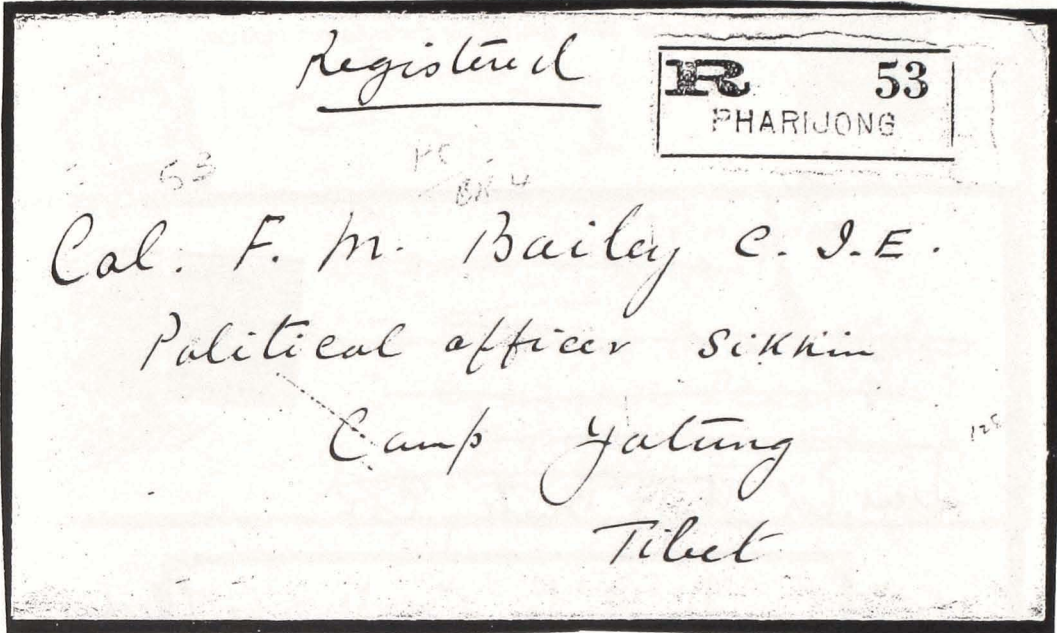 Registered
R 53
PHARIJONG
53
Col. F. M. Bailey C. I. E.
Political officer Sikkim
Camp Yatung
Tibet